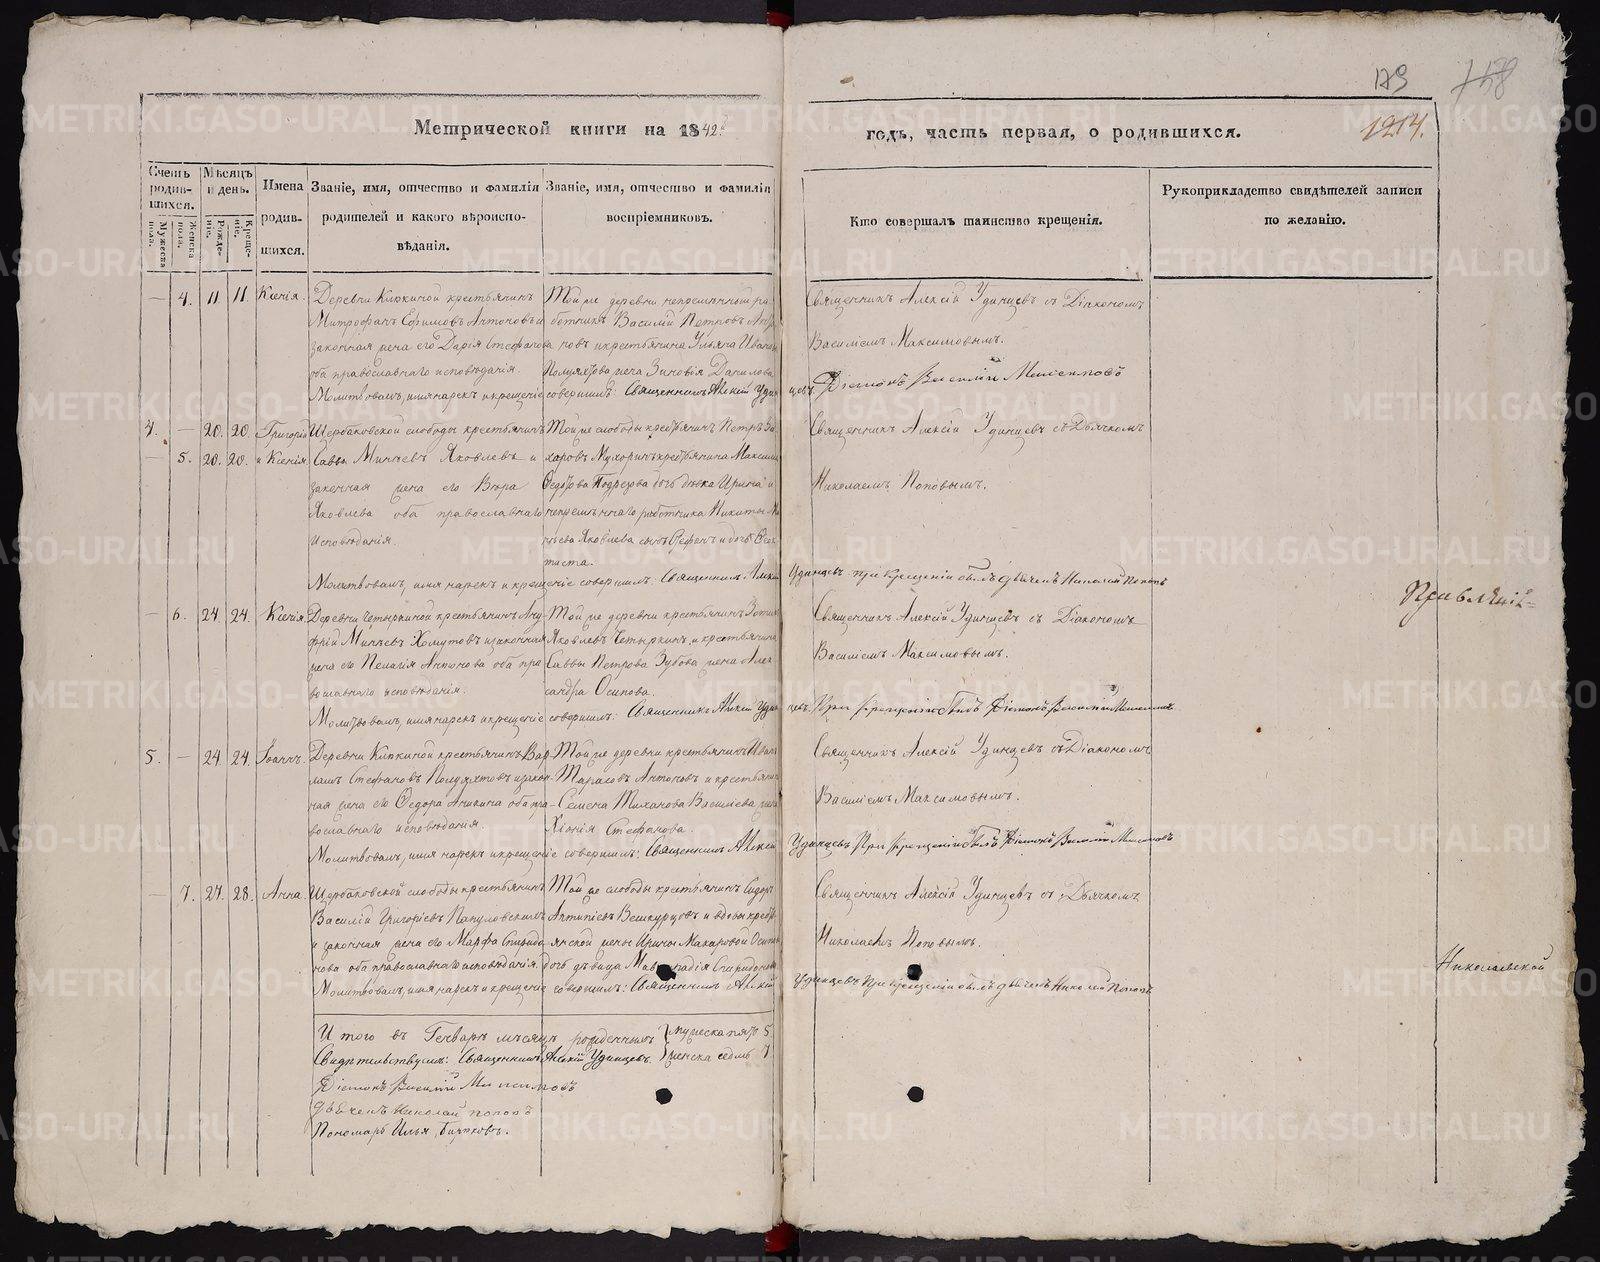 179
1214.
Метрической книги на 1842й
годъ, часть первая, о родившихся.
Счетъ родившихся.
Мужеска пола.
Женска пола.
Мѣсяцъ и день.
Рожденіе.
Крещеніе.
Имена родившихся.
Званіе, имя, отчество и фамилія родителей и какого вѣроисповѣданія.
Званіе, имя, отчество и фамилія воспріемниковъ.
Кто совершалъ таинство крещенія.
Рукоприкладство свидѣтелей записи по желанію.
— 4. 11. 11. Ксенія.
Деревни Клюкиной крестьянинъ
Митрофанъ Ефимовъ Антоновъ и
законная жена его Дарія Стефанова
оба православнаго исповѣданія.
Той же деревни непремѣнный ра-
ботникъ Василій Петровъ
новъ и крестьянина Ульяна Ивано
жена Зиновія Данилова
Молитвовалъ, имя нарекъ и крещеніе совершилъ: Священникъ Алексій Удинцевъ.
Священникъ Алексій Удинцевъ съ Діакономъ
Василіемъ Максимовымъ.
Діаконъ Василій Максимовъ
4. — 20. 20. Григорій
— 5. 20. 20. и Ксенія.
Щербаковской слободы крестьянинъ
Савва Минѣевъ Яковлевъ и
законная жена его Вѣра
Яковлева оба православнаго
исповѣданія.
Той же слободы крестьянинъ Петръ За-
харовъ Мухоринъ крестьянина Максима
Ѳедотова Подрезова дочь дѣвка Ирина и
непремѣннаго работника Никиты Ми-
нѣева Яковлева сынъ Стефанъ и дочь Ѳеок-
тиста.
Молитвовалъ, имя нарекъ и крещеніе совершилъ: Священникъ Алексій
Удинцевъ при крещеніи былъ дьячекъ Николай Поповъ
Священникъ Алексій Удинцевъ съ Дьячкомъ
Николаемъ Поповымъ.
— 6. 24. 24. Ксенія.
Деревни Четыркиной крестьянинъ Ану-
фрій Минѣевъ Хомутовъ и законная
жена его Пелагія Антонова оба пра-
вославнаго исповѣданія.
Той же деревни крестьянинъ Зотикъ
Яковлевъ Четыркинъ, и крестьянина
Саввы Петрова Зубова жена Алек-
сандра Осипова.
Молитвовалъ, имя нарекъ и крещеніе совершилъ: Священникъ Алексій Удинцевъ.
При крещеніи былъ Діаконъ Василій Максимовъ
Священникъ Алексій Удинцевъ съ Діакономъ
Василіемъ Максимовымъ.
5. — 24. 24. Іоаннъ.
Деревни Клюкиной крестьянинъ Вар-
лаамъ Стефановъ Полуяхтовъ и закон-
ная жена его Ѳедора Аникина оба пра-
вославнаго исповѣданія.
Той же деревни крестьянинъ Иванъ
Тарасовъ Антоновъ и крестьянина
Семена Тиханова Васильева жена
Хіонія Стефанова.
Молитвовалъ, имя нарекъ и крещеніе совершилъ: Священникъ Алексій
Удинцевъ При крещеніи былъ Діаконъ Василій Максимовъ
Священникъ Алексій Удинцевъ съ Діакономъ
Василіемъ Максимовымъ.
— 7. 27. 28. Анна.
Щербаковской слободы крестьянинъ
Василій Григорьевъ
и законная жена его Марфа Спиридо-
нова оба православнаго исповѣданія.
Той же слободы крестьянинъ Сидоръ
Антипіевъ Вешкурцовъ и вдовы кресть-
янской жены Ирины Макаровой Осип
дочь дѣвица Спиридонова
Молитвовалъ, имя нарекъ и крещеніе совершилъ: Священникъ Алексій
Удинцевъ При крещеніи былъ дьячекъ Николай Поповъ
Священникъ Алексій Удинцевъ съ Дьячкомъ
Николаемъ Поповымъ.
Николаевской
Итого въ Генварѣ мѣсяцѣ рожденныхъ мужеска пять 5.
женска седмь 7.
Свидѣтельствуемъ: Священникъ Алексій Удинцевъ.
Діаконъ Василій Максимовъ
Дьячекъ Николай Поповъ
Пономарь Илья Бирюковъ.
METRIKI.GASO-URAL.RU